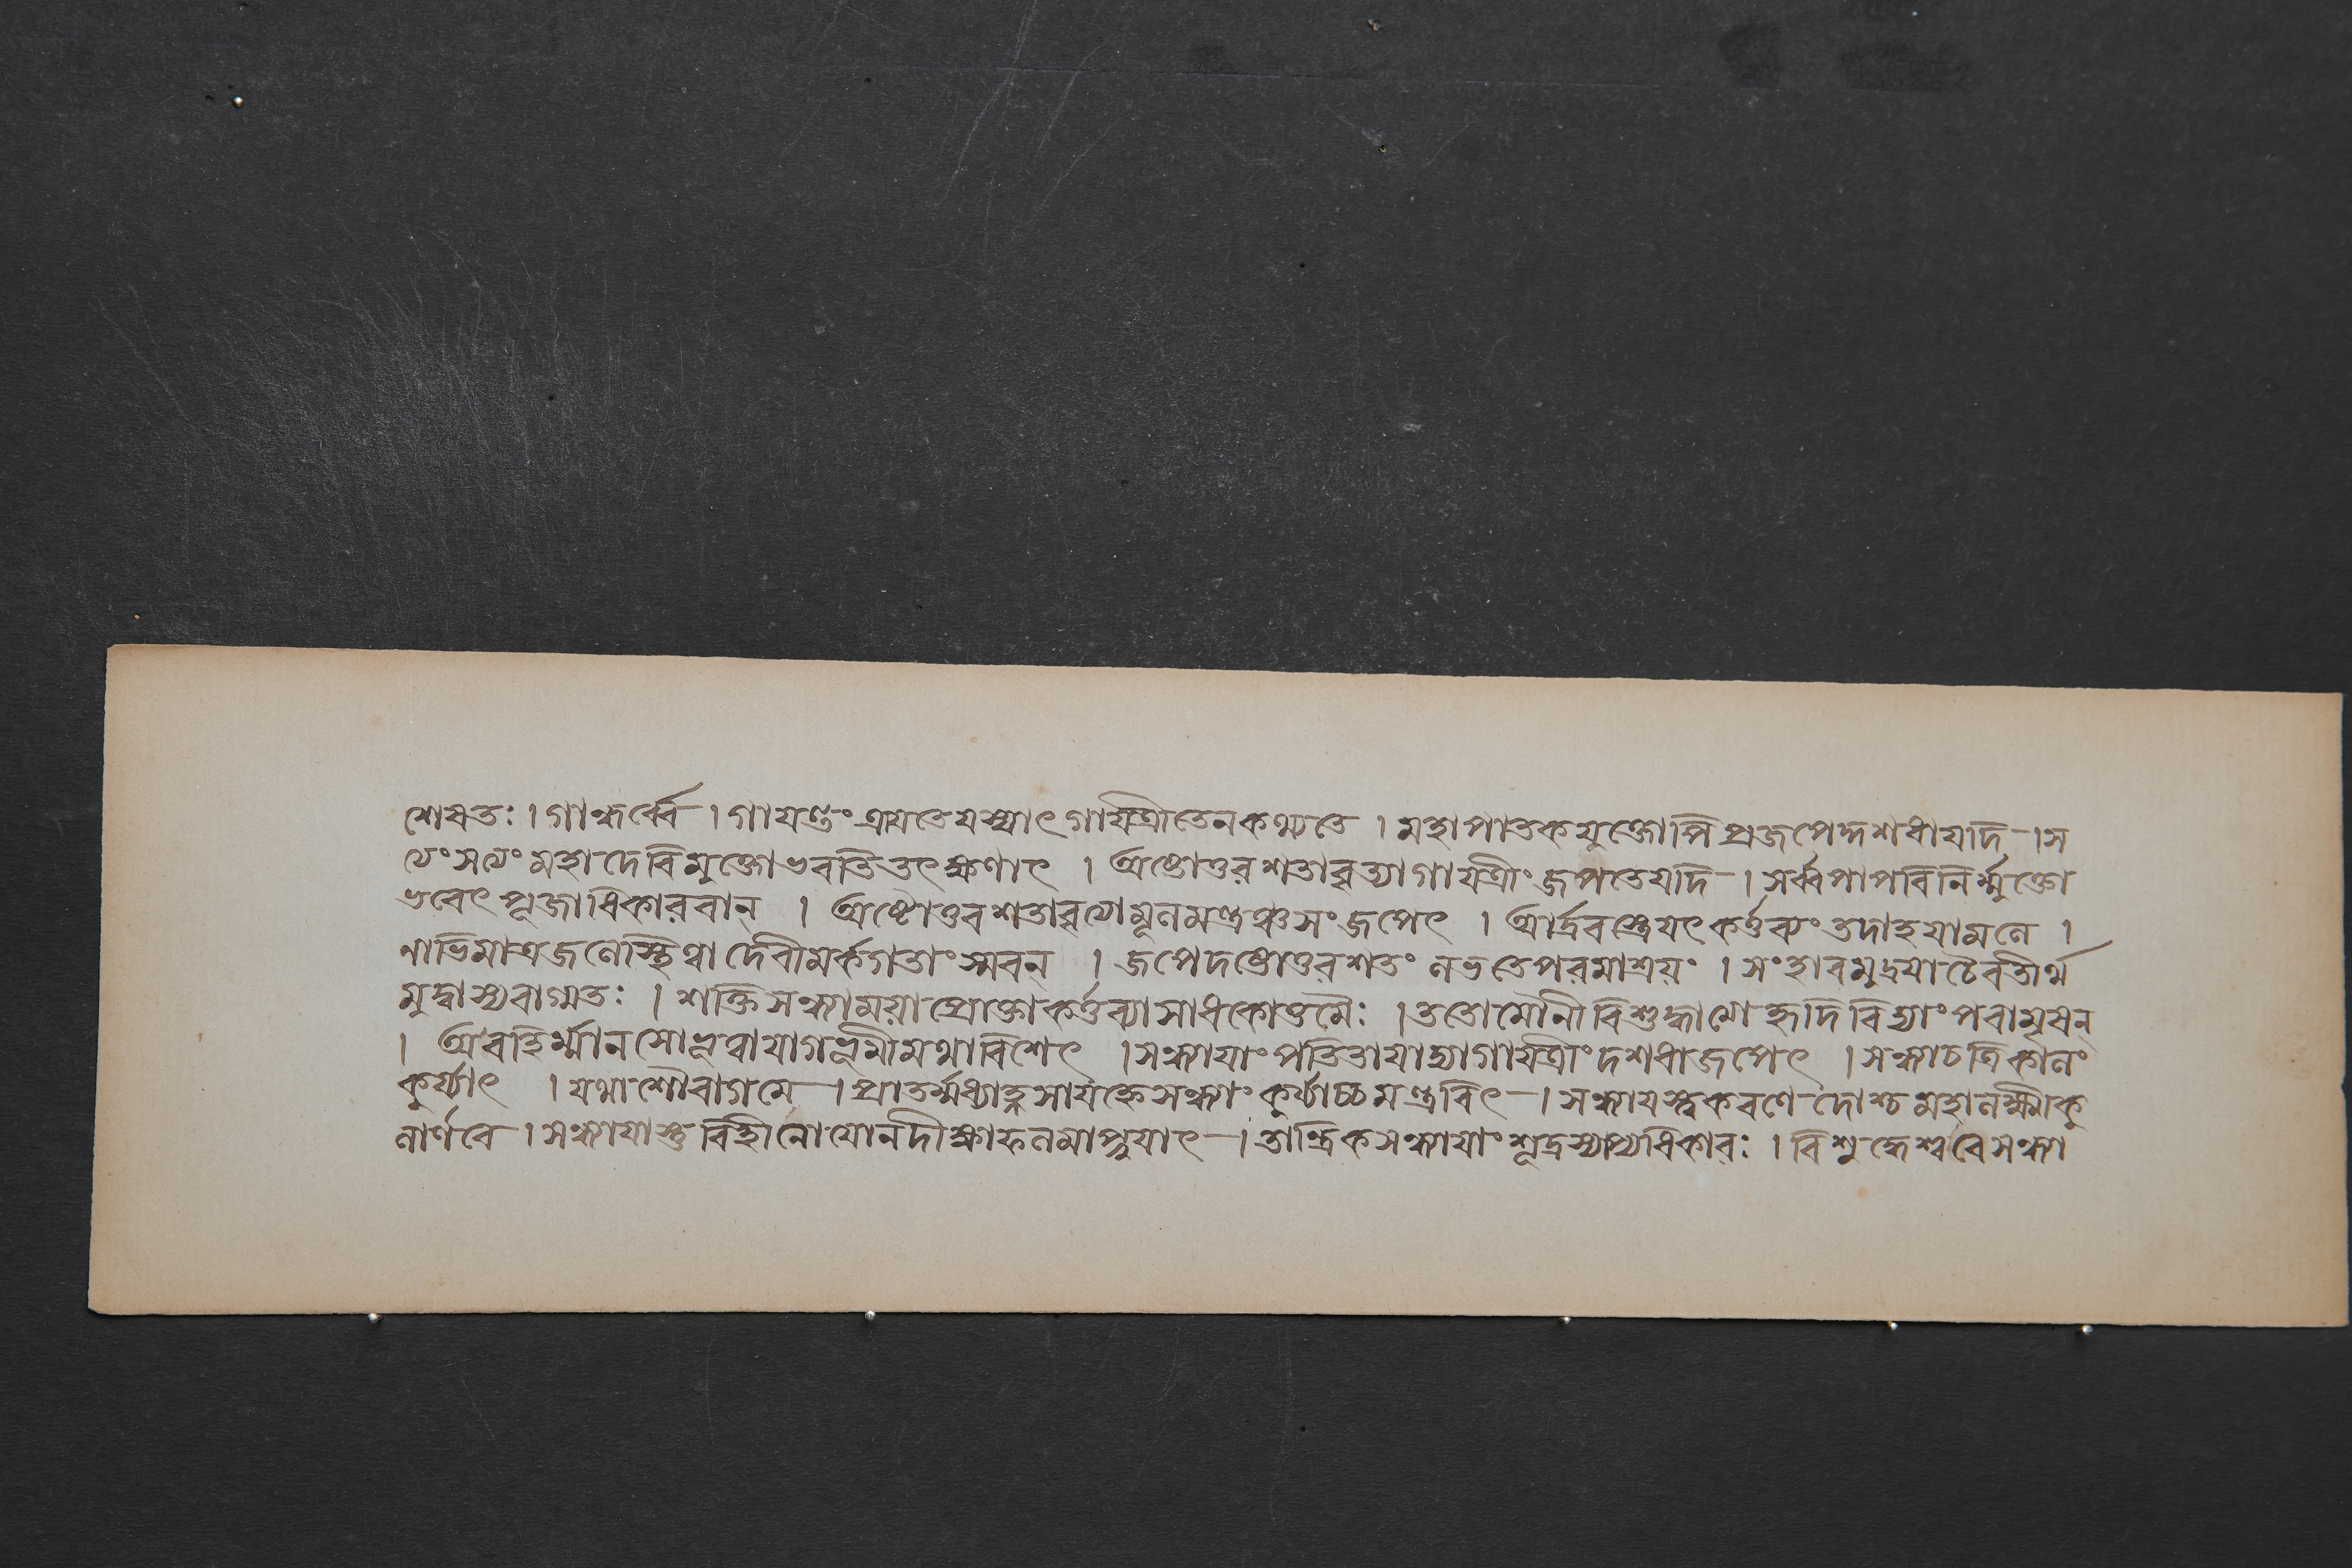 শেষতঃ । গান্ধর্ব্বে । গায়ন্তং ত্রায়তে যস্মাৎ গায়ত্রী তেন কথ্যতে । মহাপাতকযুক্তোপি প্রজপেদ্দশধা যদি । স
ত্যং সত্যং মহাদেবি মুক্তো ভবতি তৎক্ষণাৎ । অষ্টোত্তরশতাবৃত্যা গায়ত্রীং জপতে যদি । সর্ব্বপাপবিনির্ম্মুক্তো
ভবেৎ পূজাধিকারবান্ । অষ্টোত্তরশতাবৃত্যা মূলমন্ত্রঞ্চ সংজপেৎ । আর্দ্রবস্ত্রে যৎ কর্ত্তব্যং তদাহ যামলে ।
নাভিমাত্রজলে স্থিত্বা দেবীমর্কগতাং স্মরন্ । জপেদষ্টোত্তরশতং লভতে পরমাশ্রয়ং । সংহারমুদ্রয়া চৈব তীর্থ
মুদ্বাস্য বাগ্মতঃ । শক্তিসন্ধ্যা ময়া প্রোক্তা কর্ত্তব্যা সাধকোত্তমৈঃ । ততো মৌনী বিশুদ্ধাত্মা হৃদি বিদ্যাং পরামৃষন্
। অবহির্ম্মানসো ভূত্বা যাগভূমীমথাবিশেৎ । সন্ধ্যায়াং পতিতায়াদ্বা গায়ত্রীং দশধা জপেৎ । সন্ধ্যাচ ত্রিকালং
কুর্য্যাৎ । যথা গৌরাগমে । প্রাতর্ম্মধ্যাহ্নসায়াহ্নে সন্ধ্যাং কুর্য্যাচ্চ মন্ত্রবিৎ । সন্ধ্যায়স্ত্বকরণে দোশ্চ মহালক্ষ্মীকু
লার্ণবে । সন্ধ্যায়াস্তু বিহীনো যো ন দীক্ষাফলমাপ্নুয়াৎ । তান্ত্রিকসন্ধ্যায়াং শূদ্রস্যাপ্যধিকারঃ । বিশুদ্ধেশ্বরে সন্ধ্যা